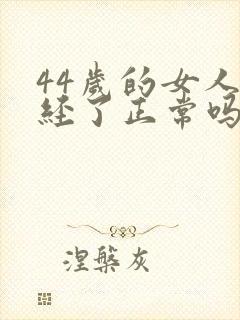 44岁的女人
经了正常吗
涅槃灰